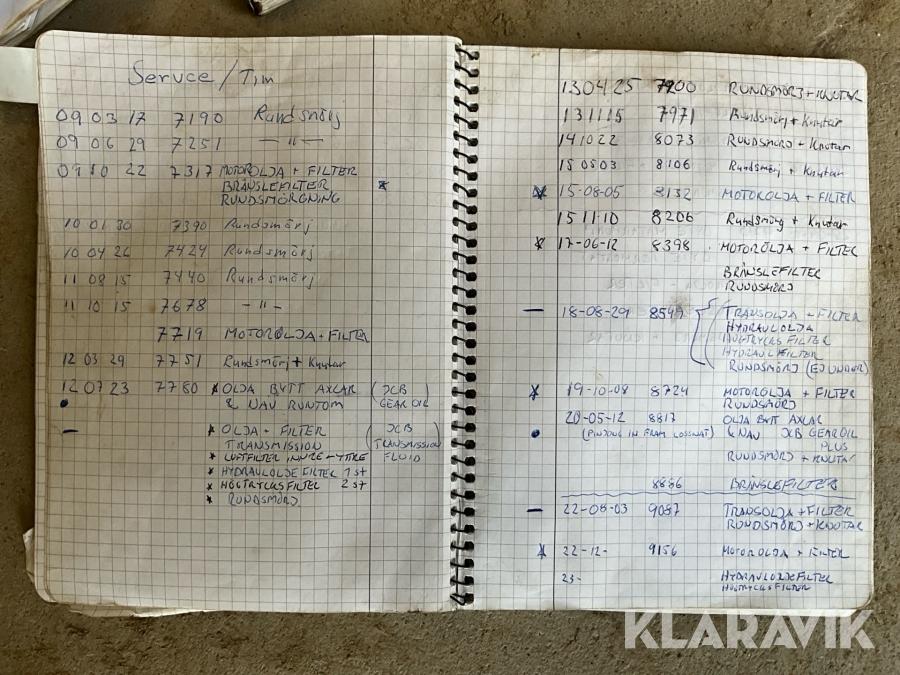 Service / Tim
09 03 17 7190 Rundsmörj
09 06 29 7251 — " —
09 10 22 7317 MOTOROLJA + FILTER
BRÄNSLEFILTER *
RUNDSMÖRGNING
10 01 30 7390 Rundsmörj
10 04 26 7424 Rundsmörj
11 08 15 7440 Rundsmörj
11 10 15 7678 — " —
7719 MOTOROLJA + FILTER
12 03 29 7751 Rundsmörj + Knutar
12 07 23 7780 * OLJA BYTT AXLAR (JCB
• & NAV RUNTOM GEAR OIL)
— * OLJA + FILTER (JCB
TRANSMISSION TRANSMISSION
* LUFTFILTER INNRE + YTTRE FLUID
* HYDRAULOLJEFILTER 1 st
* HÖGTRYCKSFILTER 2 st
* RUNDSMÖRJ
13 04 25 7900 RUNDSMÖRJ + KNUTAR
13 11 15 7971 Rundsmörj + Knutar
14 10 22 8073 RUNDSMÖRJ + Knutar
15 05 03 8106 Rundsmörj + Knutar
* 15-08-05 8132 MOTOROLJA + FILTER
15 11 10 8206 Rundsmörj + Knutar
* 17-06-12 8398 MOTOROLJA + FILTER
BRÄNSLEFILTER
RUNDSMÖRJ
— 18-08-29 8547 TRANSOLJA + FILTER
HYDRAULOLJA
HÖGTRYCKS FILTER
HYDRAULFILTER
RUNDSMÖRJ (EJ UNDER)
* 19-10-08 8724 MOTOROLJA + FILTER
RUNDSMÖRJ
20-05-12 8817 OLJA BYTT AXLAR
• (PINJONG IN FRAM LOSSNAT) & NAV JCB GEAROIL
PLUS
RUNDSMÖRJ + KNUTAR
8886 BRÄNSLEFILTER
— 22-08-03 9087 TRANSOLJA + FILTER
RUNDSMÖRJ + KNUTAR
* 22-12- 9156 MOTOROLJA + FILTER
23- HYDRAULOLJEFILTER
HÖGTRYCKSFILTER
KLARAVIK